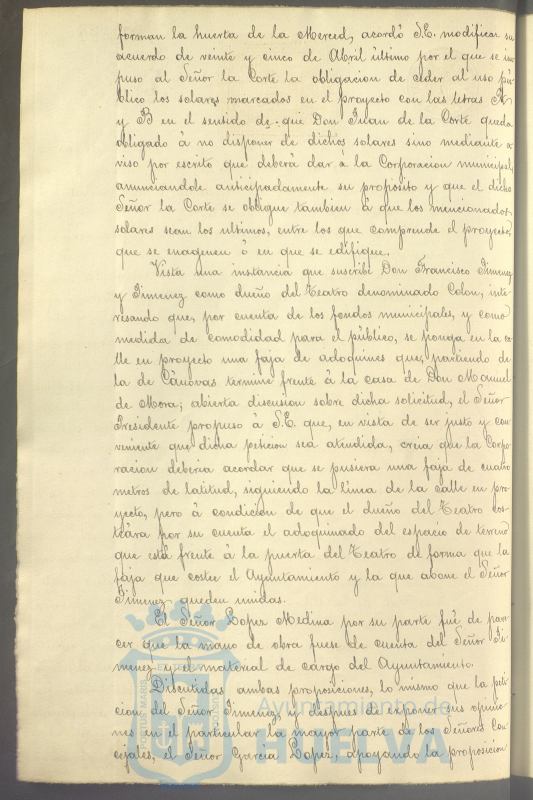 forman la huerta de la Merced, acordó S.E. modificar su
acuerdo de veinte y cinco de Abril último por el que se im
puso al Señor la Corte la obligacion de ceder al uso pú
blico los solares marcados en el proyecto con las letras A
y B en el sentido de que Don Juan de la Corte queda
obligado á no disponer de dichos solares sino mediante a
viso por escrito que deberá dar á la Corporacion municipal,
anunciandole anticipadamente su propósito y que el dicho
Señor la Corte se obligue tambien á que los mencionados
solares sean los ultimos, entre los que comprende el proyecto,
que se enagenen ó en que se edifique.
Vista una instancia que suscribe Don Francisco Jimenez
y Jimenez como dueño del Teatro denominado Colon, inte
resando que, por cuenta de los fondos municipales, y como
medida de comodidad para el público, se ponga en la ca
lle en proyecto una faja de adoquines que, partiendo de
la de Cánovas termine frente á la casa de Don Manuel
de Mora; abierta discusion sobre dicha solicitud, el Señor
Presidente propuso á S.E. que, en vista de ser justo y con
veniente que dicha peticion sea atendida, creia que la Corpo
racion deberia acordar que se pusiera una faja de cuatro
metros de latitud, siguiendo la linea de la calle en pro
yecto, pero á condicion de que el dueño del Teatro cos
teára por su cuenta el adoquinado del espacio de terreno
que está frente á la puerta del Teatro de forma que la
faja que costee el Ayuntamiento y la que abone el Señor
Jimenez queden unidas.
El Señor Lopez Medina por su parte fué de pare
cer que la mano de obra fuese de cuenta del Señor Ji
menez y el material de cargo del Ayuntamiento.
Discutidas ambas proposiciones, lo mismo que la peti
cion del Señor Jimenez, y despues de exponer sus opinio
nes en el particular la mayor parte de los Señores Con
cejales, el Señor Garcia Lopez, apoyando la proposicion
Ayuntamiento de
HUELVA